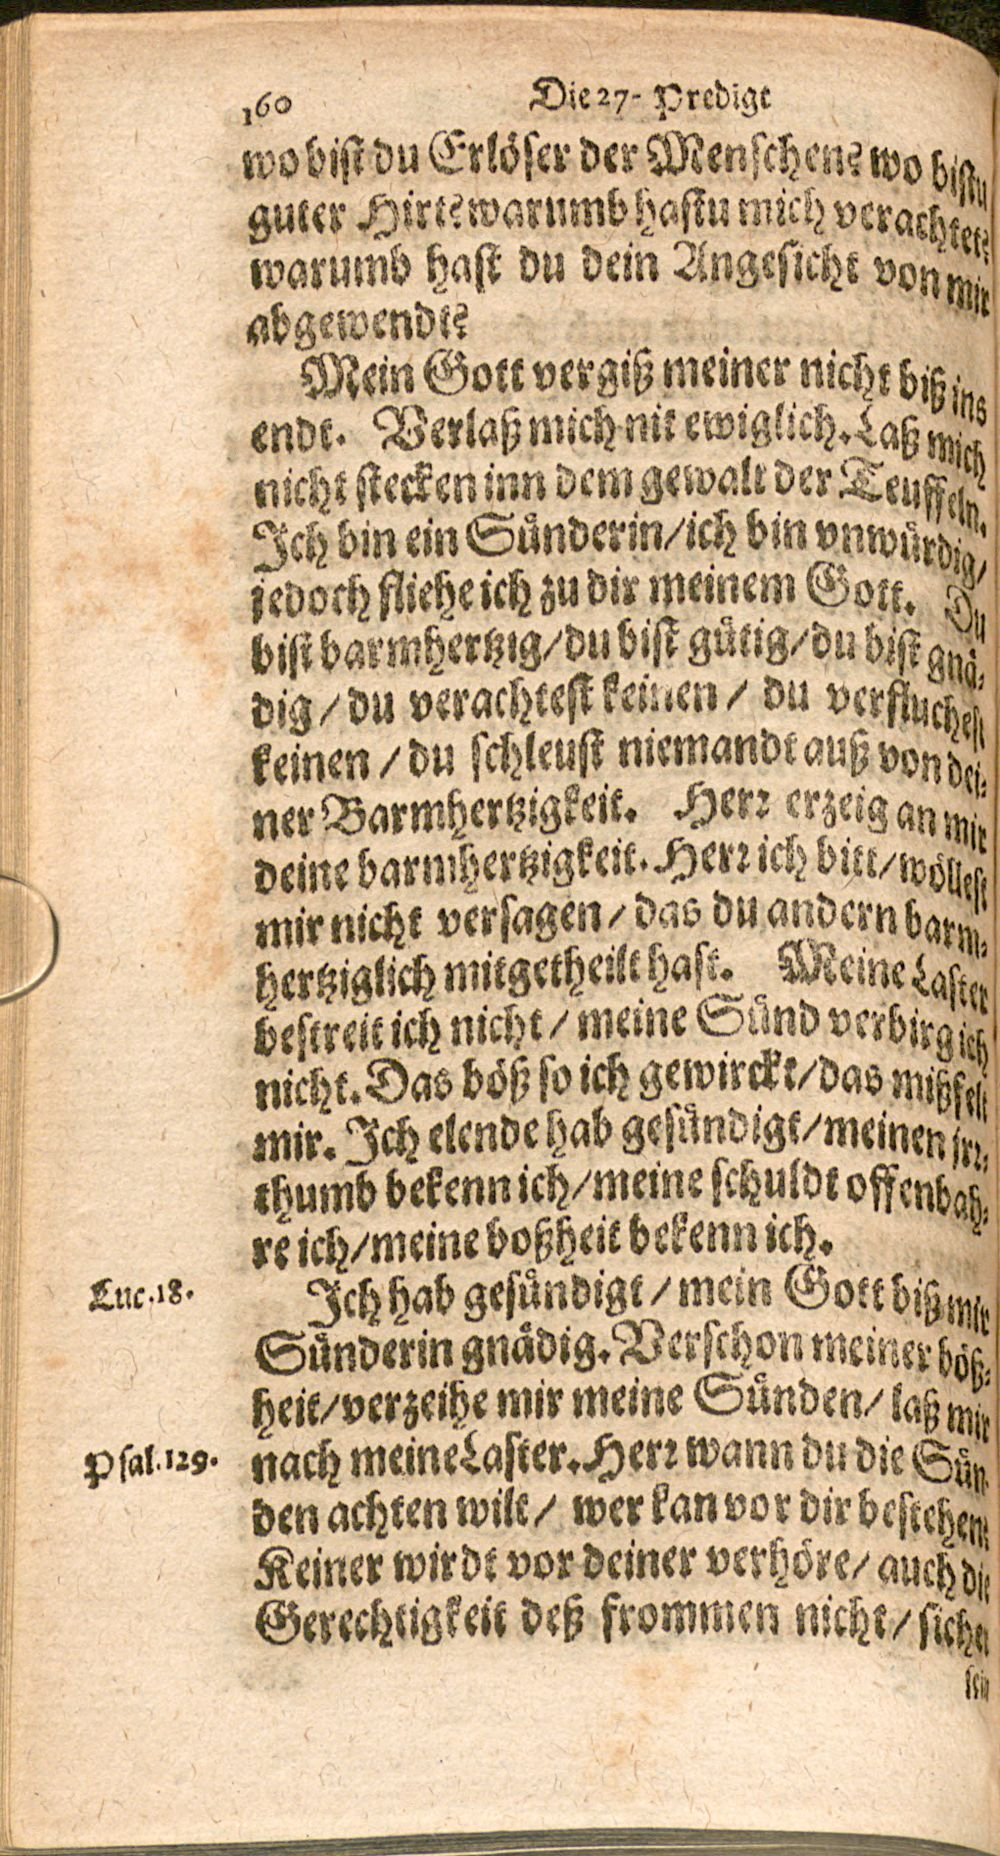 160 Die 27- Predigt
wo bist du Erlöser der Menschen? wo bistu
guter Hirt? warumb hastu mich verachtet?
warumb hast du dein Angesicht von mir
abgewendt?
Mein Gott vergiß meiner nicht biß ins
endt. Verlaß mich nit ewiglich. Laß mich
nicht stecken inn dem gewalt der Teuffeln.
Ich bin ein Sünderin/ ich bin vnwürdig/
jedoch fliehe ich zu dir meinem Gott. Du
bist barmhertzig/ du bist gütig/ du bist gnä-
dig/ du verachtest keinen/ du verfluchest
keinen/ du schleust niemandt auß von dei-
ner Barmhertzigkeit. Herr erzeig an mir
deine barmhertzigkeit. Herr ich bitt/ wöllest
mir nicht versagen/ das du andern barm-
hertziglich mitgetheilt hast. Meine Laster
bestreit ich nicht/ meine Sünd verbirg ich
nicht. Das böß so ich gewirckt/ das mißfelt
mir. Ich elende hab gesündigt/ meinen jrr-
thumb bekenn ich/ meine schuldt offenbah-
re ich/ meine boßheit bekenn ich.
Luc. 18. Ich hab gesündigt/ mein Gott biß mir
Sünderin gnädig. Verschon meiner böß-
heit/ verzeihe mir meine Sünden/ laß mir
Psal. 129. nach meine Laster. Herr wann du die Sün-
den achten wilt/ wer kan vor dir bestehen?
Keiner wirdt vor deiner verhöre/ auch die
Gerechtigkeit deß frommen nicht/ sicher
sein